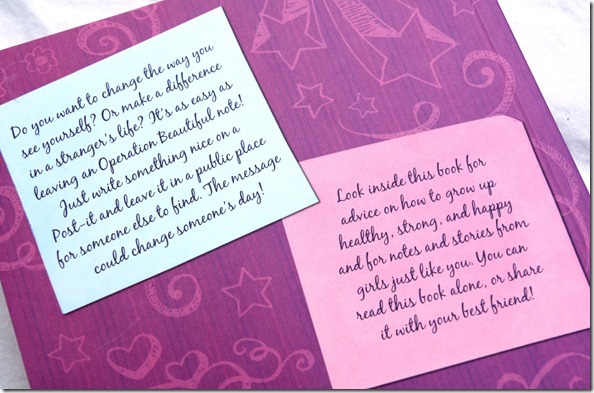 Do you want to change the way you
see yourself? Or make a difference
in a stranger's life? It's as easy as
leaving an Operation Beautiful note!
Just write something nice on a
Post-it and leave it in a public place
for someone else to find. The message
could change someone's day!
Look inside this book for
advice on how to grow up
healthy, strong, and happy
and for notes and stories from
girls just like you. You can
read this book alone, or share
it with your best friend!